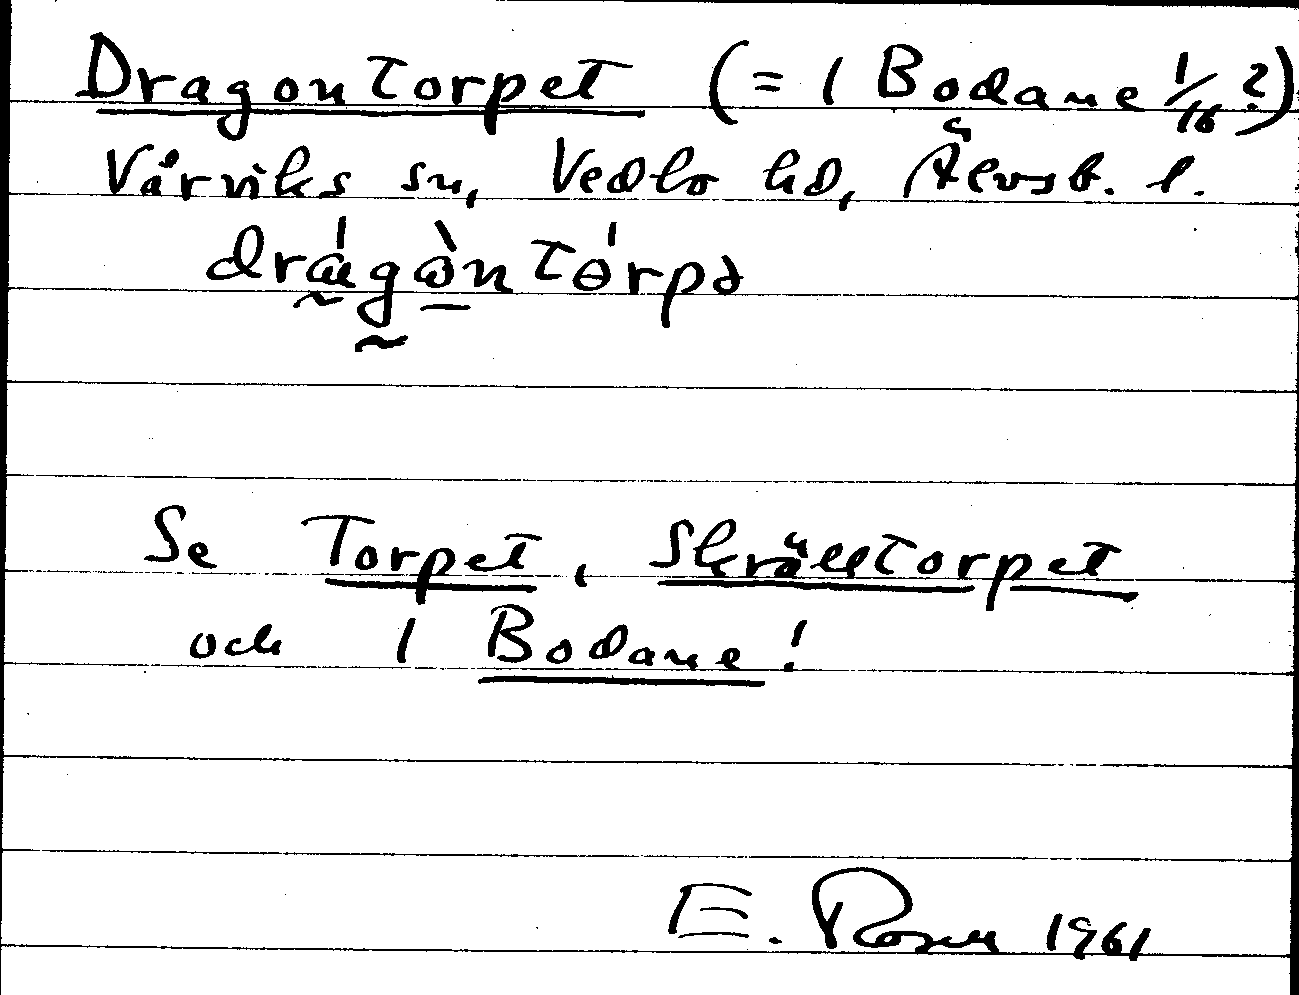 Dragontorpet (= 1 Bodane 1/16?)
Vårviks sn, Vedbo hd, Älvsb. l.
drágòntɵ́rpə
Se Torpet, Skrälltorpet
och 1 Bodane!
E. Rosell 1961